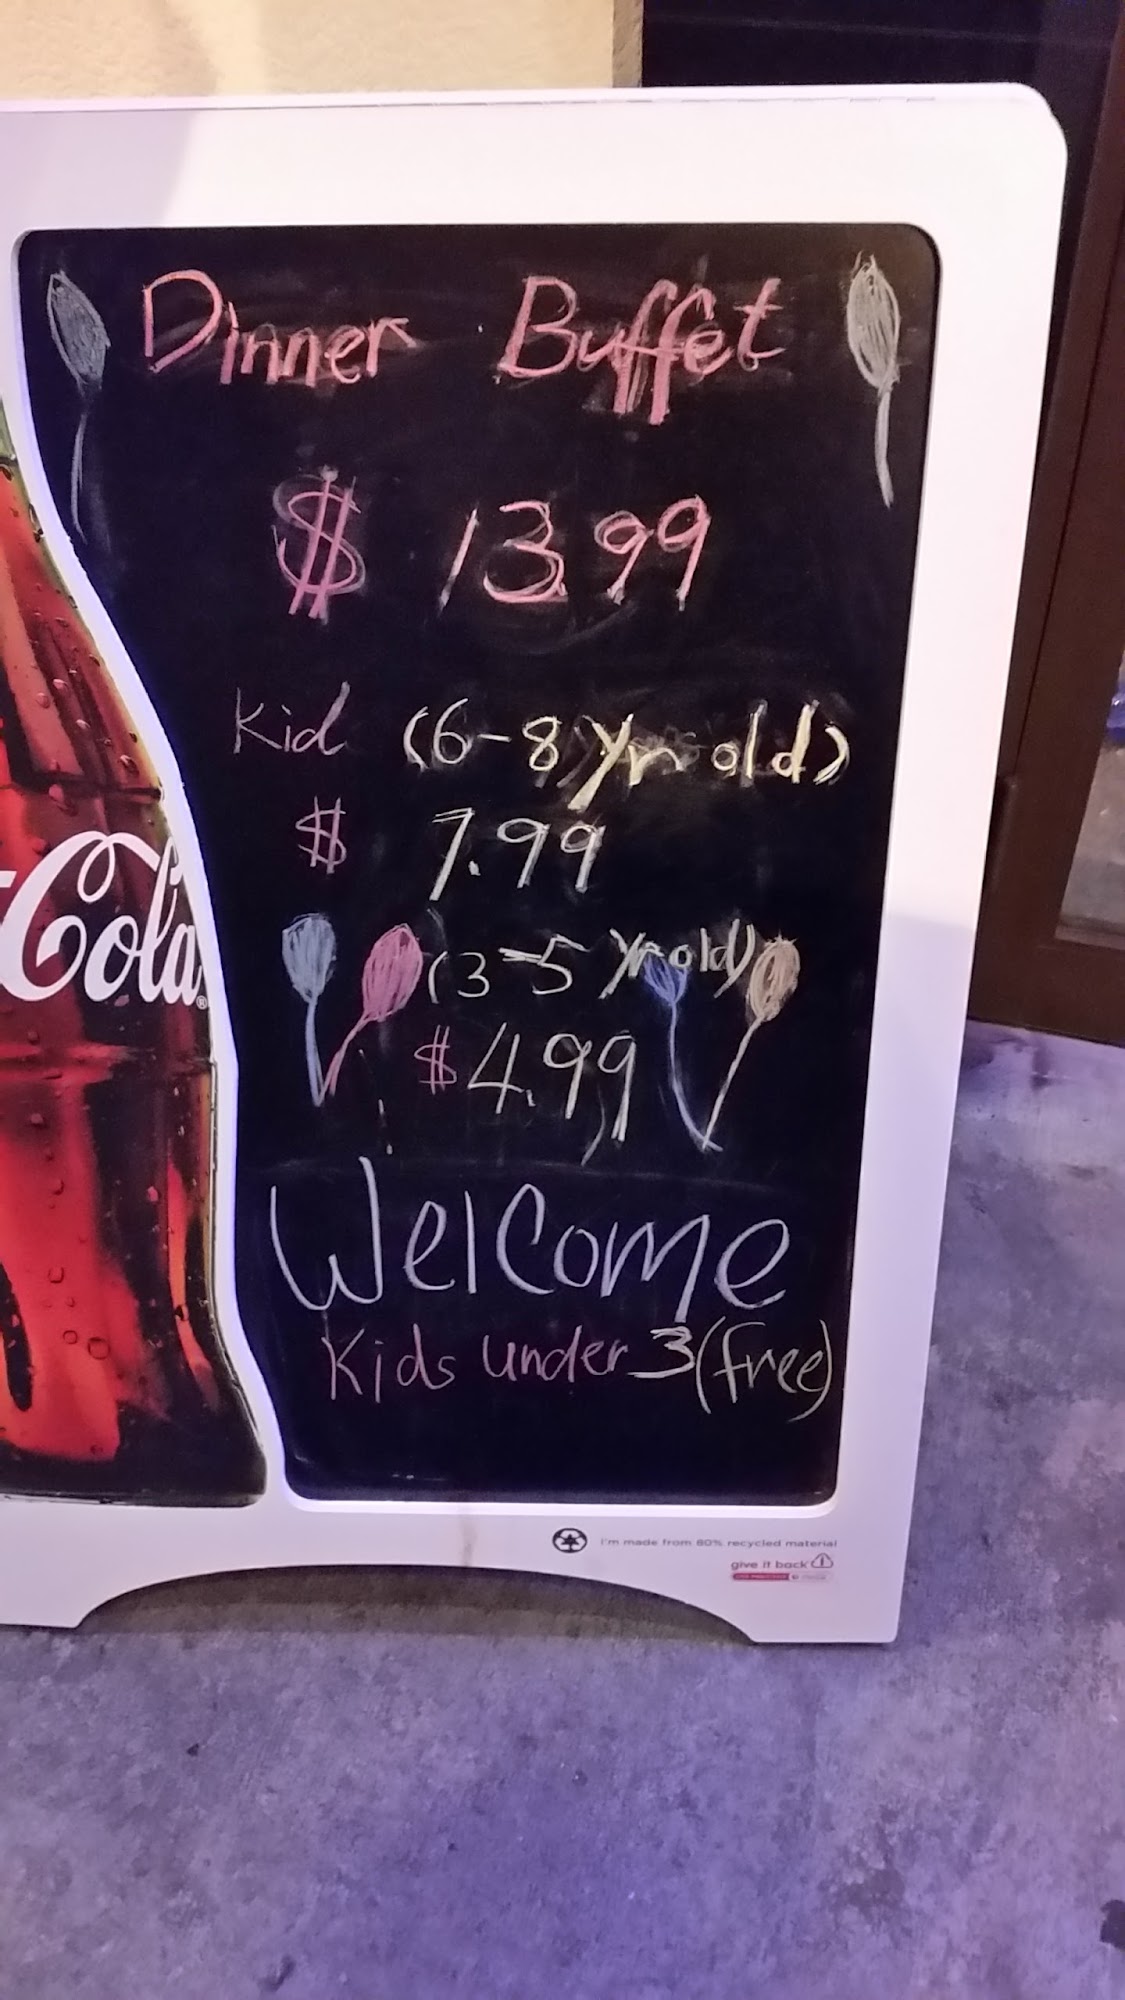 Dinner Buffet
$ 13.99
Kid (6-8 yr old)
$ 7.99
(3-5 yr old)
$ 4.99
Welcome
Kids under 3 (free)
Cola
I'm made from 80% recycled material
give it back